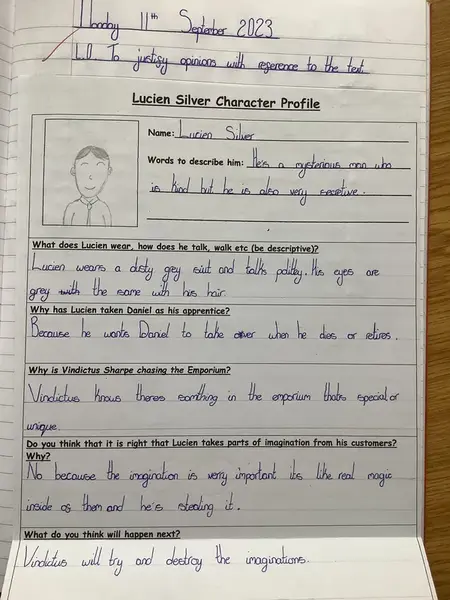 Monday 11th September 2023
L.O. To justify opinions with reference to the text
Lucien Silver Character Profile
Name: Lucien Silver
Words to describe him: He's a mysterious man who
is kind but he is also very secretive.
What does Lucien wear, how does he talk, walk etc (be descriptive)?
Lucien wears a dusty grey siut and talks politly. His eyes are
grey with the same with his hair.
Why has Lucien taken Daniel as his apprentice?
Because he wants Daniel to take over when he dies or retires.
Why is Vindictus Sharpe chasing the Emporium?
Vindictus knows theres somthing in the emporium thats special or
unique.
Do you think that it is right that Lucien takes parts of imagination from his customers?
Why?
No because the imagination is verry important its like real magic
inside of them and he's stealing it.
What do you think will happen next?
Vindictus will try and destroy the imaginations.